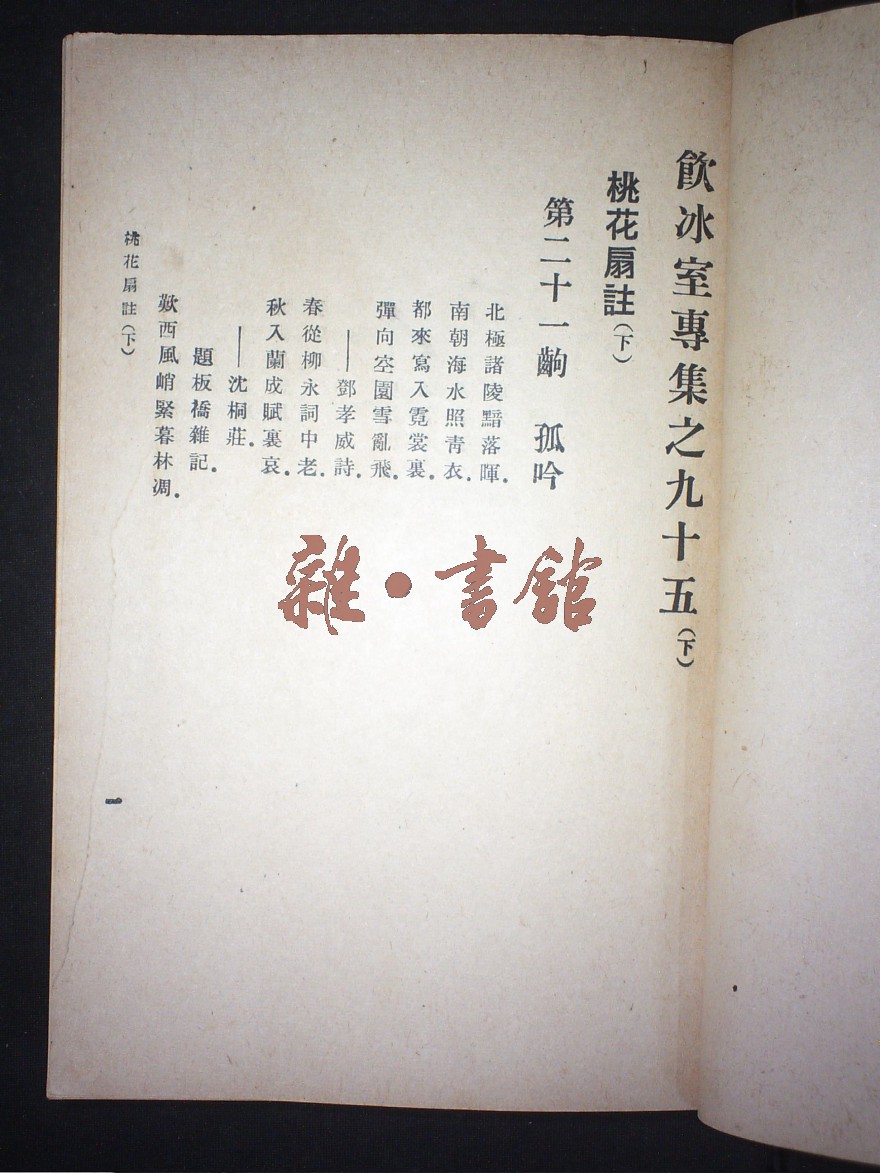 飮冰室專集之九十五(下)
桃花扇註(下)
第二十一齣 孤吟
北極諸陵黯落暉.
南朝海水照靑衣.
都來寫入霓裳裏.
彈向空園雪亂飛.
——鄧孝威詩.
春從柳永詞中老.
秋入蘭成賦裏哀.
——沈桐莊.
題板橋雜記.
歎西風峭緊暮林凋.
桃花扇註(下)
一
雜•書館